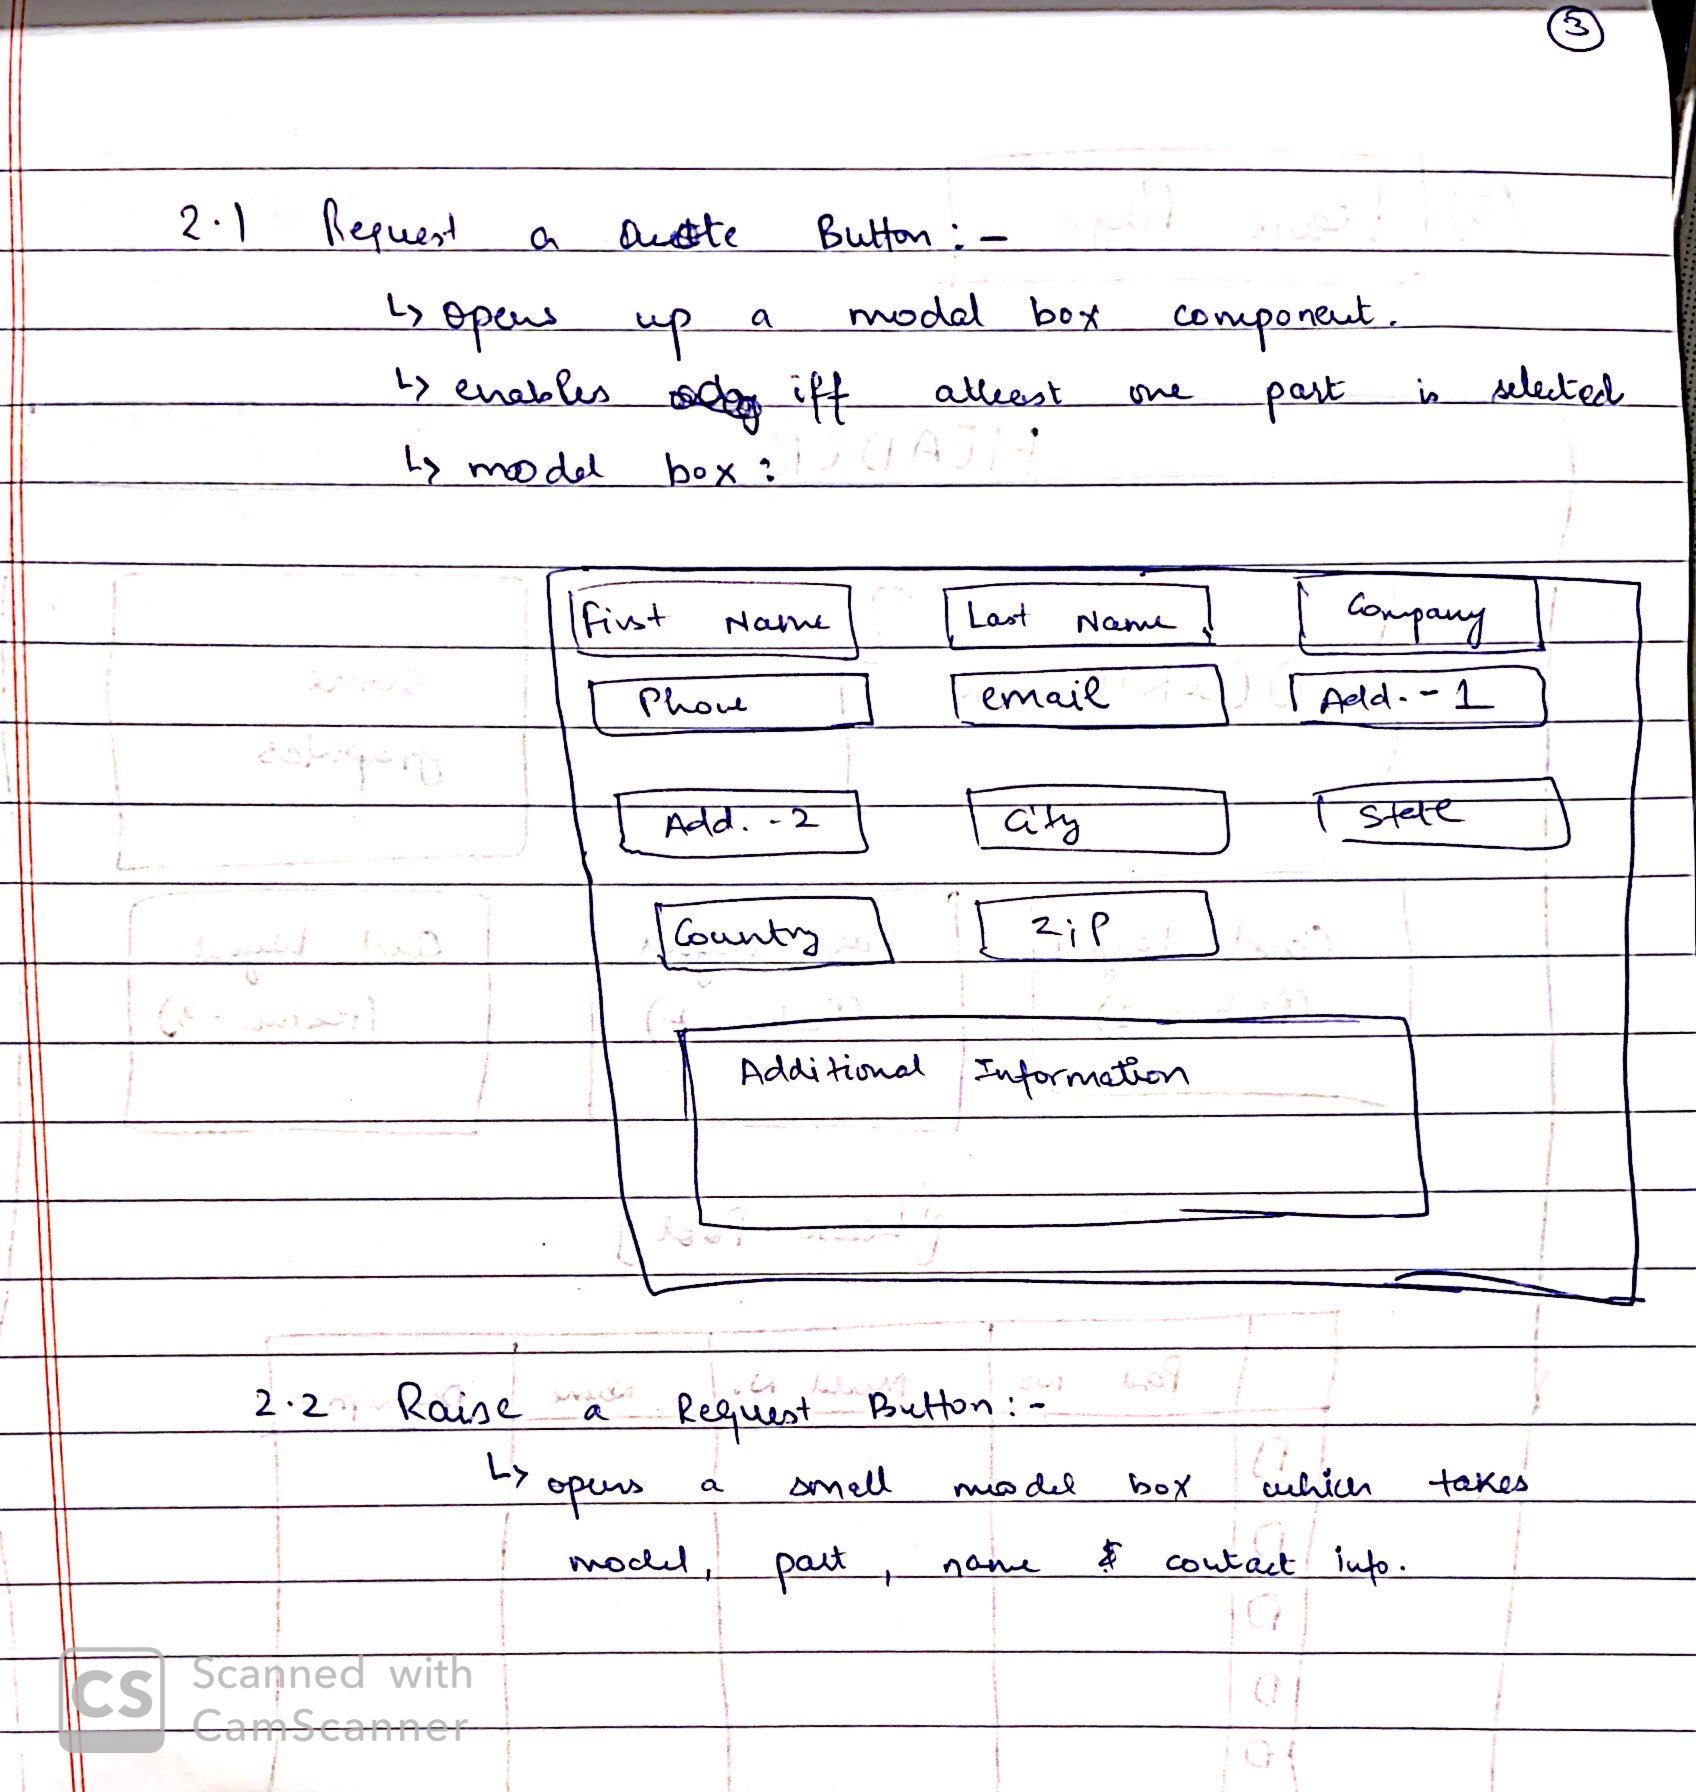 3
2.1 Request a Quote Button :-
↳ opens up a modal box component.
↳ enables iff atleast one part is selected
↳ modal box :
First Name Last Name Company
Phone email Add. - 1
Add. - 2 City State
Country Zip
Additional Information
2.2 Raise a Request Button :-
↳ opens a small modal box which takes
model, part, name & contact info.
CS Scanned with
CamScanner